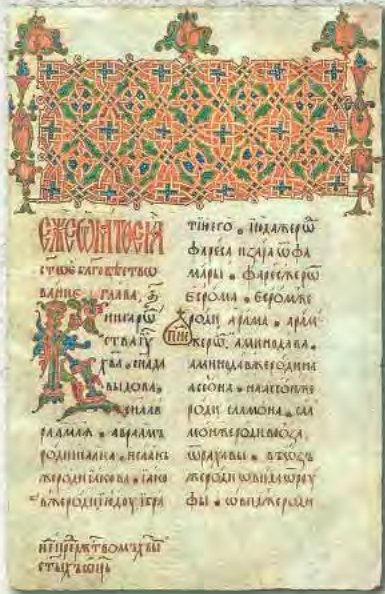 ЕЖЕ Ѿ МАТѲЕА
ст҃ое бл҃говѣство
вание глава, а҃
Книга рѡ
ства іу҃
хв҃а. сн҃а да
выдова,
сн҃а ав
раамля. авраамъ
роди исаака. исаакъ
же роди іакова. іако
в же роди іюдоу и бра
тию его. июда же рѡ
фареса и зара ѿ фа
мары. фарес же рѡ
есрома. есром же
роди арама. арам
же рѡ. аминодава.
аминодав же роди на
ассона. наассон же
роди салмона. сал
мон же роди вооза,
ѿ рахавы. воозъ
же роди ѡвида ѿ роу
фы. ѡвид же роди
ст҃ыхъ ѡц҃ь